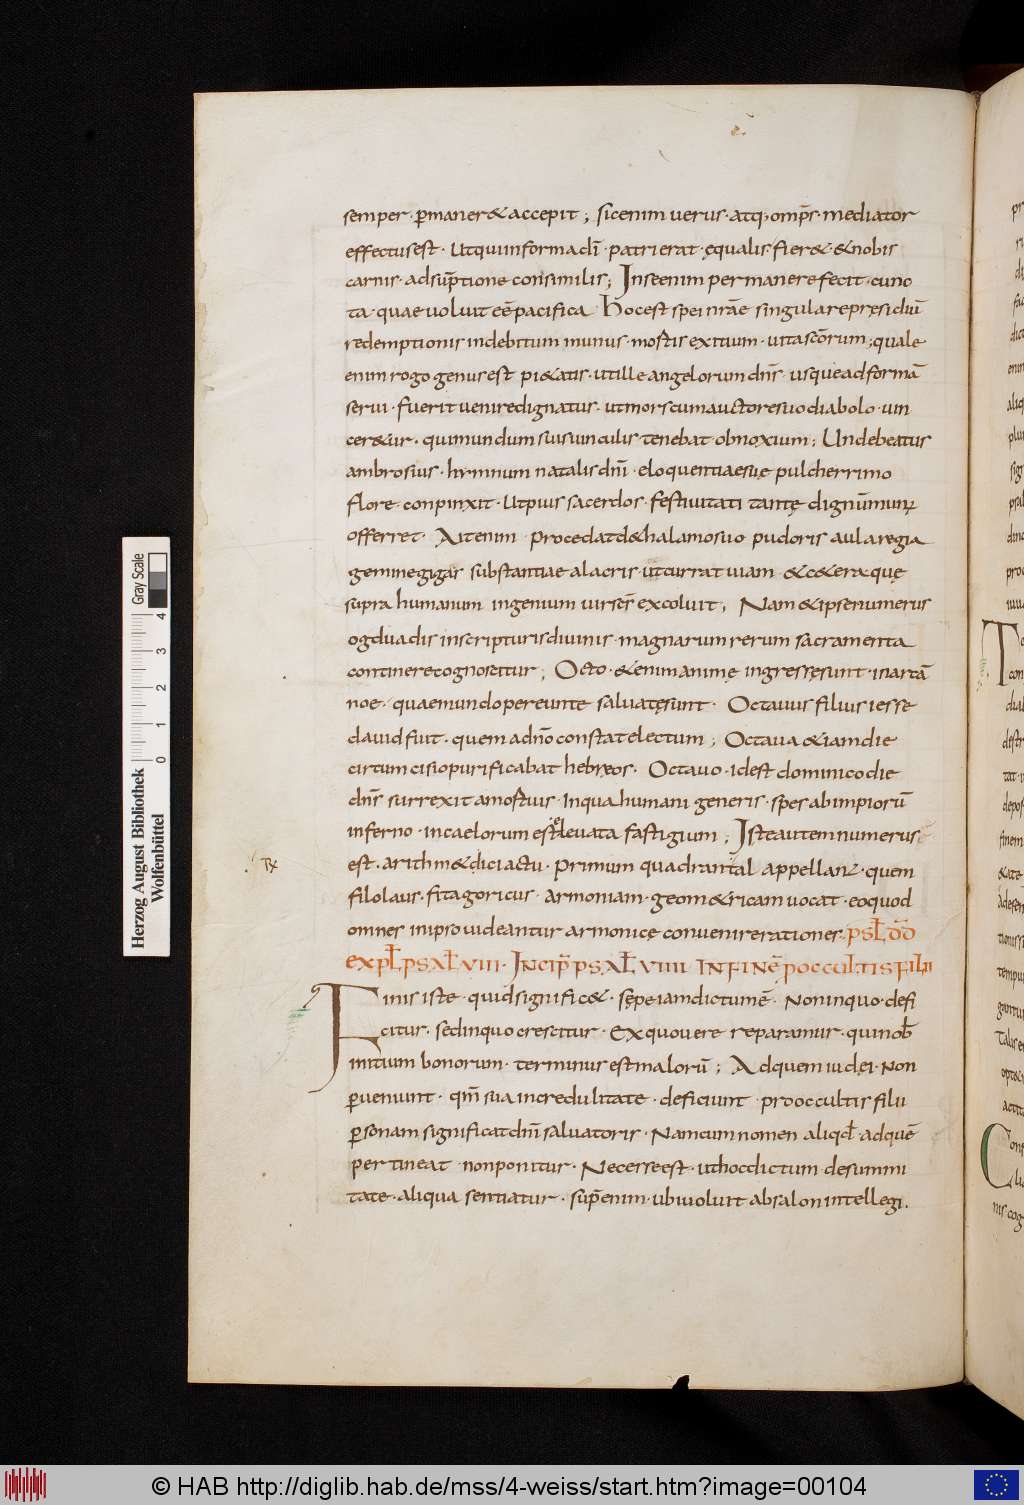 semper · p̄maner& accepit ; sicenim uerus · atq; om̄ps · mediator
effectusest · utquiinforma dī · patri erat · ęqualis · fier& · &nobis
carnis · adsūptione consimilis ; Inseenim permanere fecit · cunc
ta · quaeuoluit eē pacifica · Hocest spei nr̄ae singulare pręsidiū
redemptionis indebitum munus · mortis exitium · uita sc̄orum ; quale
enim rogo genus est pi&atis · ut ille angelorum dn̄s · usque ad formā
serui · fuerit uenire dignatus · ut mors cum auctore suo diabolo · uin
cer&ur · qui mundum suis uinculis · tenebat obnoxium ; Unde beatus
ambrosius · hymnum natalis dn̄i · eloquentiae suę pulcherrimo
flore · conpinxit · ut pius sacerdos · festiuitati tantę dignū mun;
offerret · Ait enim procedat de thalamo suo pudoris aula regia
gemine gigas substantiae alacris · ut currat uiam &c&era quę
supra humanum ingenium uir sc̄s excoluit ; Nam &ipse numerus
ogduadis in scripturis diuinis · magnarum rerum sacramenta
continere cognoscitur ; Octo · &enim animę ingressę sunt · in arcā
noe · quae mundo pereunte saluatę sunt · Octauus filius iesse
dauid fuit · quem a dn̄o constat electum ; Octaua &iam die
circumcisio purificabat hebreos · Octauo · idest dominico die
dn̄s surrexit a mortuis · in qua humani generis · spes ab impiorū
inferno · in caelorum est eleuata fastigium ; Iste autem numerus
est · arithm&dici actu · primum quadrantal appellant · quem
filolaus · fitagoricus · armoniam · geom&ricam uocat · eoquod
omnes in ipso uideantur armonicę conuenire rationes · psl̄ dd̄
expl̄ psal̄ · VIII · Incip̄ psal̄ VIIII INFINĒ p occultis filii
Finis iste · quid signific& · sępe iam dictum ē · Non in quo · defi
citur · sed in quo crescitur · Ex quo uere reparamur · qui nob̄
initium bonorum · terminus est malorū ; Ad quem iudęi · Non
p̄ueniunt · qm̄ sua incredulitate · deficiunt pro occultis filii
p̄sonam significat dn̄i saluatoris · Nam cum nomen aliqd̄ · ad quē
pertineat non ponitur · Necesse est · ut hoc dictum de summi
tate · aliqua sentiatur · sup̄ enim · ubi uoluit absalon intellegi ·
Herzog August Bibliothek
Wolfenbüttel
Gray Scale
0 1 2 3 4
© HAB http://diglib.hab.de/mss/4-weiss/start.htm?image=00104